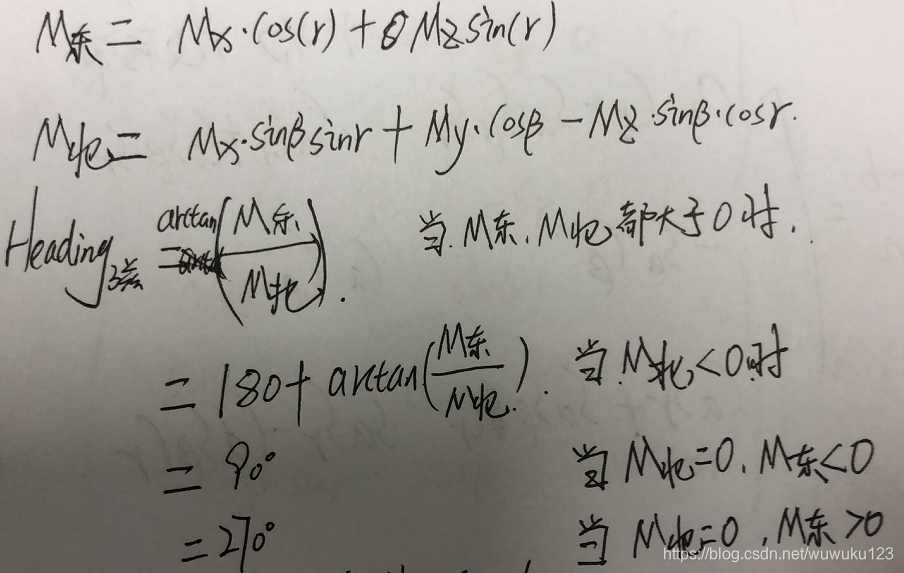 M东 = Mx·cos(r) + Mz sin(r)
M北 = Mx·sinβ sinr + My·cosβ - Mz·sinβ·cosr.
Heading = arctan(M东/M北). 当 M东, M北 都大于0时.
= 180 + arctan(M东/M北). 当 M北<0时
= 90° 当 M北=0, M东<0
= 270° 当 M北=0, M东>0
https://blog.csdn.net/wuwuku123